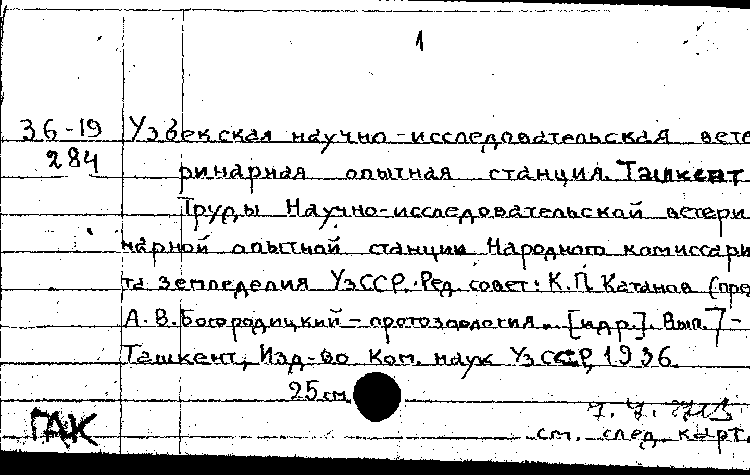 1
36-19 Узбекская научно-исследовательская вете
284 ринарная опытная станция. Ташкент
Труды Научно-исследовательской ветери
нарной опытной станции Народного комиссари
та земледелия УзССР. Ред. совет: К.П. Катанов (пре
А.В. Богородицкий - протозоология.. [и др.]. Вып. 7 -
Ташкент, Изд-во Ком. наук УзССР, 1936.
25 см.
ГАК
см. след. карт.